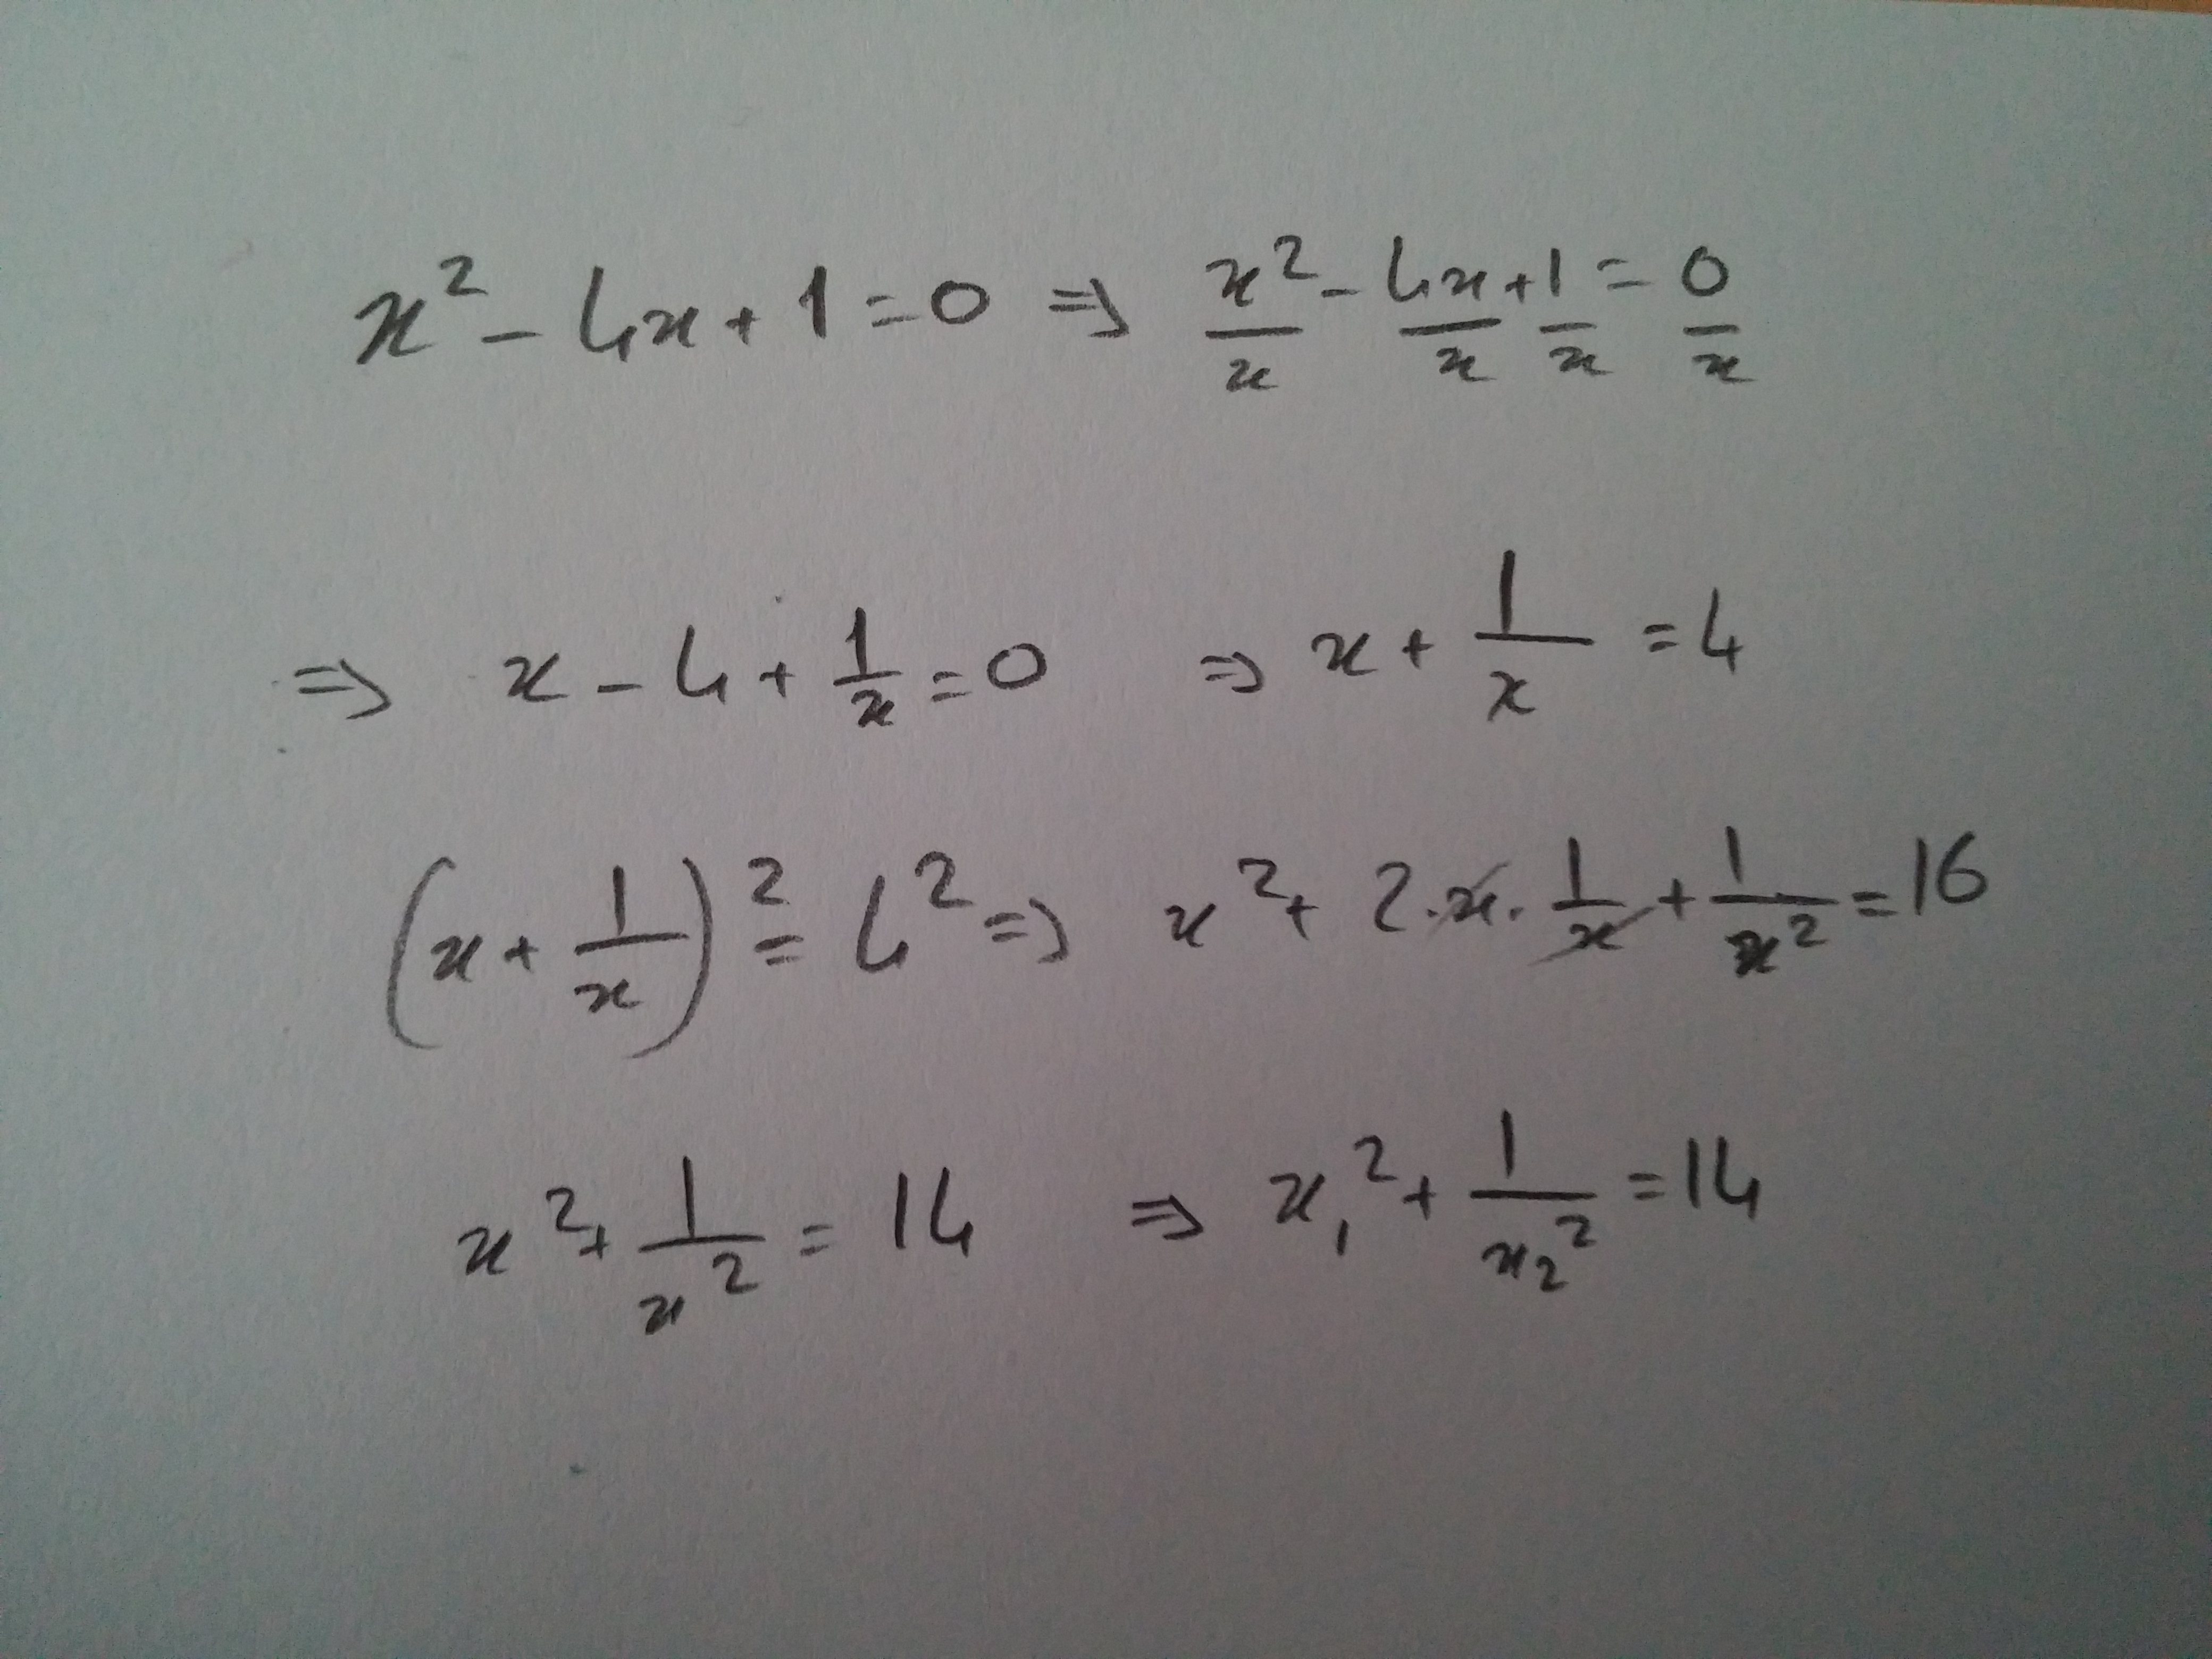 x² - 4x + 1 = 0 ⇒ x²/x - 4x/x + 1/x = 0/x
⇒ x - 4 + 1/x = 0 ⇒ x + 1/x = 4
(x + 1/x)² = 4² ⇒ x² + 2.x.1/x + 1/x² = 16
x² + 1/x² = 14 ⇒ x₁² + 1/x₂² = 14